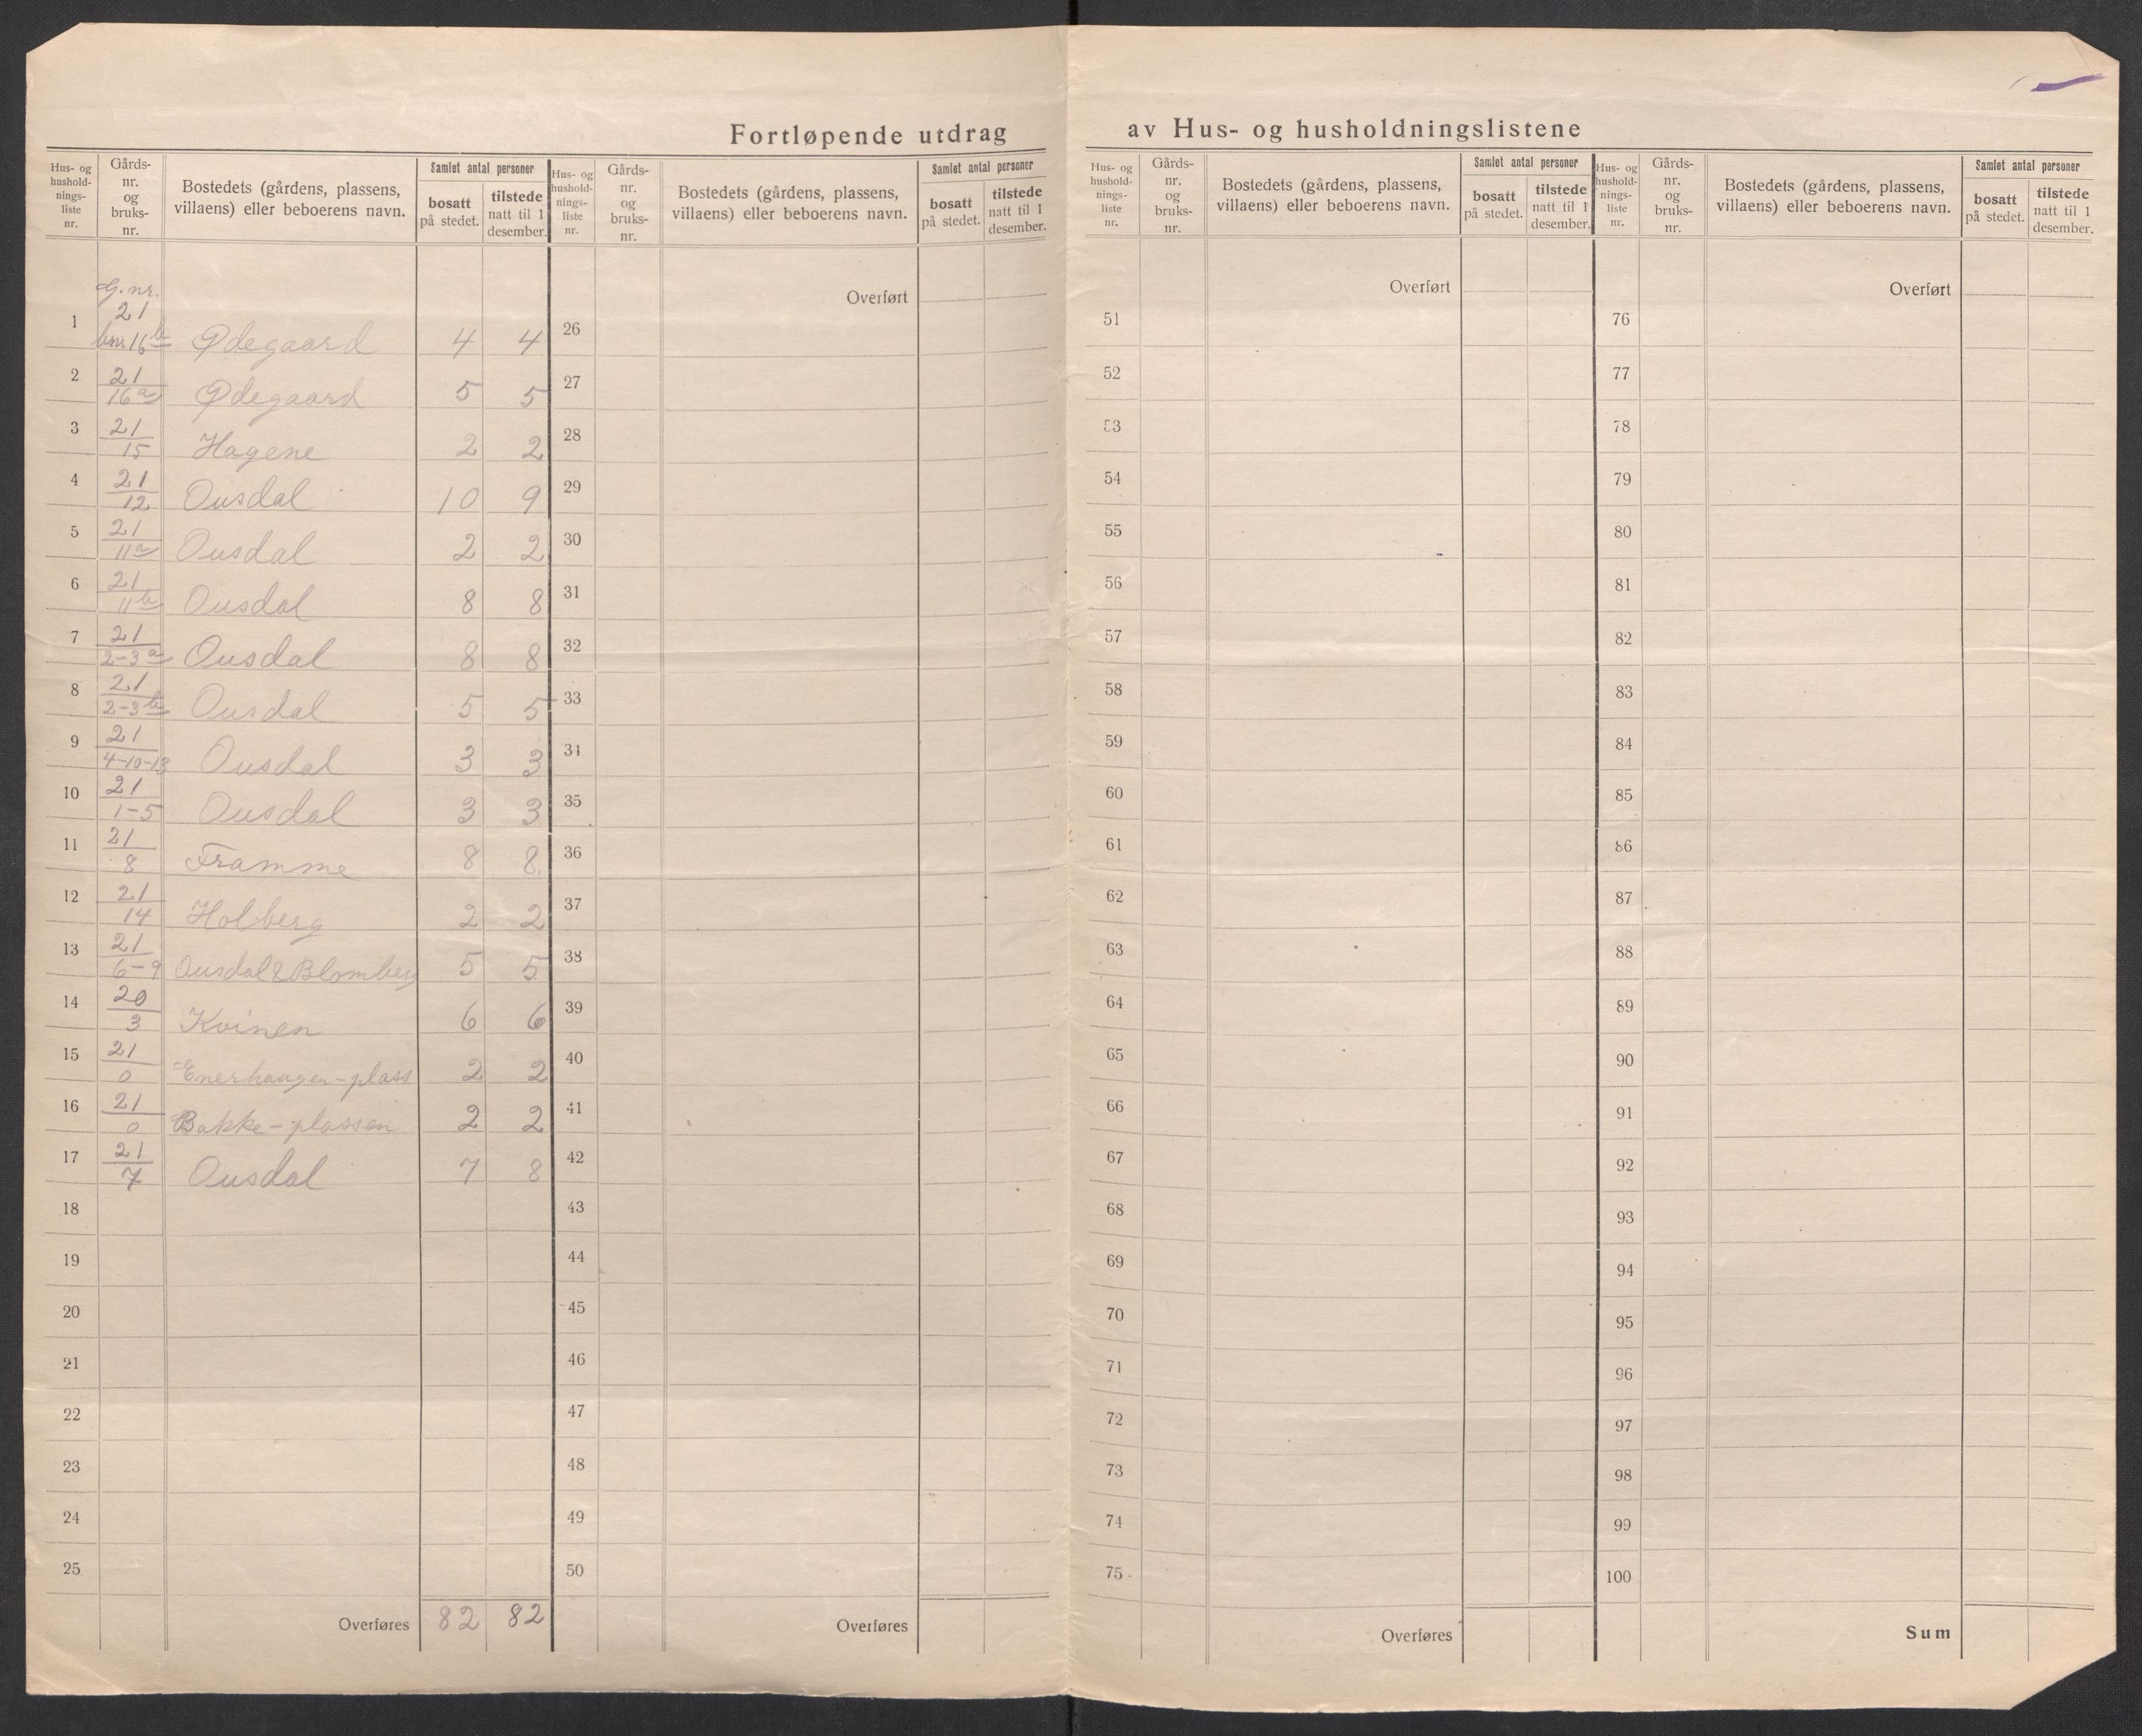 Fortløpende utdrag av Hus- og husholdningslistene
Hus- og hushold-nings-liste nr. | Gårds-nr. og bruks-nr. | Bostedets (gårdens, plassens, villaens) eller beboerens navn. | Samlet antal personer | bosatt på stedet. | tilstede natt til 1 desember.
Hus- og hushold-nings-liste nr. | Gårds-nr. og bruks-nr. | Bostedets (gårdens, plassens, villaens) eller beboerens navn. | Samlet antal personer | bosatt på stedet. | tilstede natt til 1 desember.
Hus- og hushold-nings-liste nr. | Gårds-nr. og bruks-nr. | Bostedets (gårdens, plassens, villaens) eller beboerens navn. | Samlet antal personer | bosatt på stedet. | tilstede natt til 1 desember.
Hus- og hushold-nings-liste nr. | Gårds-nr. og bruks-nr. | Bostedets (gårdens, plassens, villaens) eller beboerens navn. | Samlet antal personer | bosatt på stedet. | tilstede natt til 1 desember.
1 G.nr. 21 bnr 16b Ødegaard 4 4
2 21/16a Ødegaard 5 5
3 21/15 Hagene 2 2
4 21/12 Ousdal 10 9
5 21/11a Ousdal 2 2
6 21/11b Ousdal 8 8
7 21/2-3a Ousdal 8 8
8 21/2-3b Ousdal 5 5
9 21/4-10-13 Ousdal 3 3
10 21/1-5 Ousdal 3 3
11 21/8 Framme 8 8
12 21/14 Holberg 2 2
13 21/6-9 Ousdal & Blomberg 5 5
14 20/3 Kvinen 6 6
15 21/0 Enerhaugen-plass 2 2
16 21/0 Bakke-plassen 2 2
17 21/7 Ousdal 7 8
18
19
20
21
22
23
24
25
Overføres 82 82
Overført
26
27
28
29
30
31
32
33
34
35
36
37
38
39
40
41
42
43
44
45
46
47
48
49
50
Overføres
Overført
51
52
53
54
55
56
57
58
59
60
61
62
63
64
65
66
67
68
69
70
71
72
73
74
75
Overføres
Overført
76
77
78
79
80
81
82
83
84
85
86
87
88
89
90
91
92
93
94
95
96
97
98
99
100
Sum